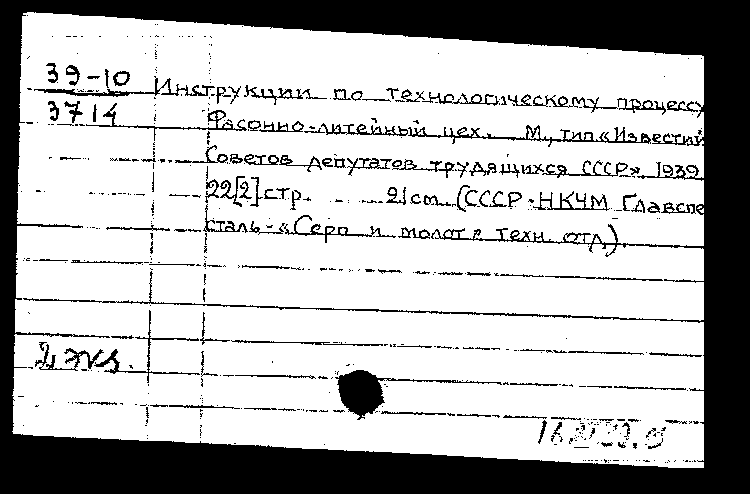 39-10
3714
Инструкции по технологическому процессу
Фасонно-литейный цех. М., тип. «Известий
Советов депутатов трудящихся СССР», 1939
22[2] стр. 21 см. (СССР-НКЧМ Главспе
сталь-«Серп и молот» Техн. отд.).
2 экз.